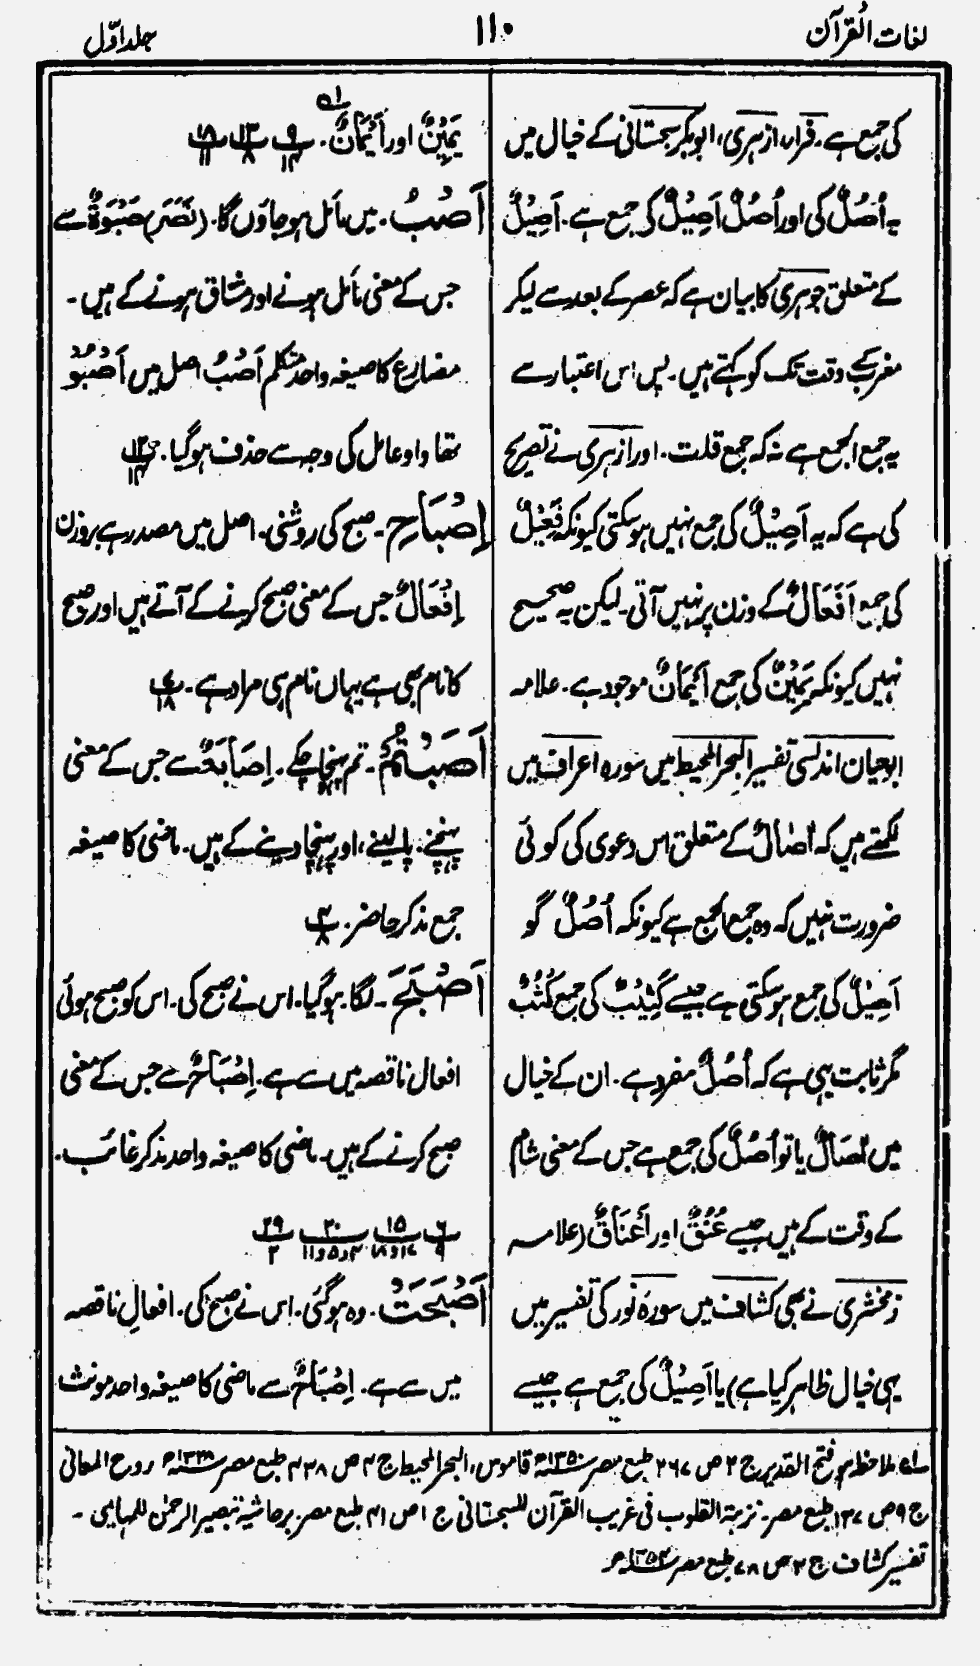 لغات القرآن
۱۱۰
جلد اوّل
کی جمع ہے۔ فراء، ازہری، ابوبکر سجستانی کے خیال میں
یہ اُصُلٌ کی اور اُصُلٌ اَصِیْلٌ کی جمع ہے۔ اَصِیْلٌ
کے متعلق جوہری کا بیان ہے کہ عصر کے بعد سے لیکر
مغرب کے وقت تک کو کہتے ہیں۔ پس اس اعتبار سے
یہ جمع الجمع ہے نہ کہ جمع قلت۔ اور ازہری نے تصریح
کی ہے کہ یہ اَصِیْلٌ کی جمع نہیں ہوسکتی کیونکہ فَعِیْلٌ
کی جمع اَفْعَالٌ کے وزن پر نہیں آتی۔ لیکن یہ صحیح
نہیں کیونکہ یَمِیْنٌ کی جمع اَیْمَانٌ موجود ہے۔ علامہ
ابوحیان اندلسی تفسیر البحر المحیط میں سورہ اعراف میں
لکھتے ہیں کہ اٰصَالٌ کے متعلق اس دعوی کی کوئی
ضرورت نہیں کہ وہ جمع الجمع ہے کیونکہ اُصُلٌ گو
اَصِیْلٌ کی جمع ہوسکتی ہے جیسے کَثِیْبٌ کی جمع کُثُبٌ
مگر ثابت یہی ہے کہ اُصُلٌ مفرد ہے۔ ان کے خیال
میں اٰصَالٌ یا تو اُصُلٌ کی جمع ہے جس کے معنی شام
کے وقت کے ہیں جیسے عُنُقٌ اور اَعْنَاقٌ (علامہ
زمخشری نے بھی کشاف میں سورۂ نور کی تفسیر میں
یہی خیال ظاہر کیا ہے) یا اَصِیْلٌ کی جمع ہے جیسے
یَمِیْنٌ اور اَیْمَانٌ۔ ۱ے پ۹ ۱۴ پ۱۳ ۸ پ۱۸ ۱۱
اَصْبُ۔ میں مائل ہوجاؤں گا۔ (نَصَرَ) صَبْوَۃٌ سے
جس کے معنی مائل ہونے اور مشتاق ہونے کے ہیں۔
مضارع کا صیغہ واحد متکلم اَصْبُ اصل میں اَصْبُوْ
تھا واو عامل کی وجہ سے حذف ہوگیا۔ پ۱۲ ۱۴
اِصْبَاحِ۔ صبح کی روشنی۔ اصل میں مصدر ہے بروزن
اِفْعَالٌ جس کے معنی صبح کرنے کے آتے ہیں اور صبح
کا نام بھی ہے یہاں نام ہی مراد ہے۔ پ۷ ۱۸
اَصَبْتُمْ۔ تم پہنچا چکے۔ اِصَابَۃٌ سے جس کے معنی
پہنچنے، پالینے، اور پہنچا دینے کے ہیں۔ ماضی کا صیغہ
جمع مذکر حاضر۔ پ۴ ۸
اَصْبَحَ۔ لگا۔ ہوگیا۔ اس نے صبح کی۔ اس کو صبح ہوئی
افعال ناقصہ میں سے ہے۔ اِصْبَاحٌ سے جس کے معنی
صبح کرنے کے ہیں۔ ماضی کا صیغہ واحد مذکر غائب۔
پ۶ ۹ پ۱۵ ۱۷و۱۸ پ۲۰ ۴و۵و۱۱ پ۲۹ ۲
اَصْبَحَتْ۔ وہ ہوگئی۔ اس نے صبح کی۔ افعالِ ناقصہ
میں سے ہے۔ اِصْبَاحٌ سے ماضی کا صیغہ واحد مونث
۱ے ملاحظہ ہو فتح القدیر ج ۲ ص ۲۶۷ طبع مصر ۱۳۵۰ھ قاموس، البحر المحیط ج ۴ ص ۴۳۸ طبع مصر ۱۳۲۸ھ روح المعانی
ج ۹ ص ۱۳۷ طبع مصر۔ نزہۃ القلوب فی غریب القرآن للسجستانی ج ۱ ص ۴۱ طبع مصر برحاشیہ تبصیر الرحمٰن للمہایمی۔
تفسیر کشاف ج ۲ ص ۷۸ طبع مصر ۱۳۵۴ھ